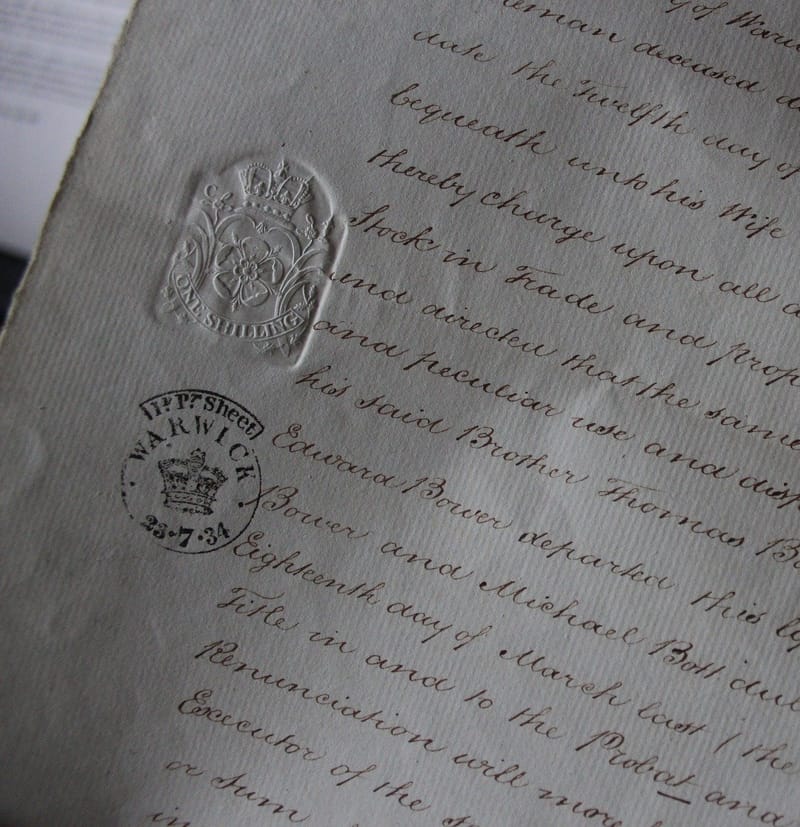 of War
deceased
date the Twelfth day of
bequeath unto his Wife
thereby charge upon all
Stock in Trade and prop
and directed that the same
and peculiar use and disp
his said Brother Thomas B
Edward Bower departed this
Bower and Michael Bott
Eighteenth day of March last (the
Title in and to the Probat and
Renunciation will more
Executor of the
or sum
in
ONE SHILLING
11d Pr. Sheet
WARWICK
23·7·34